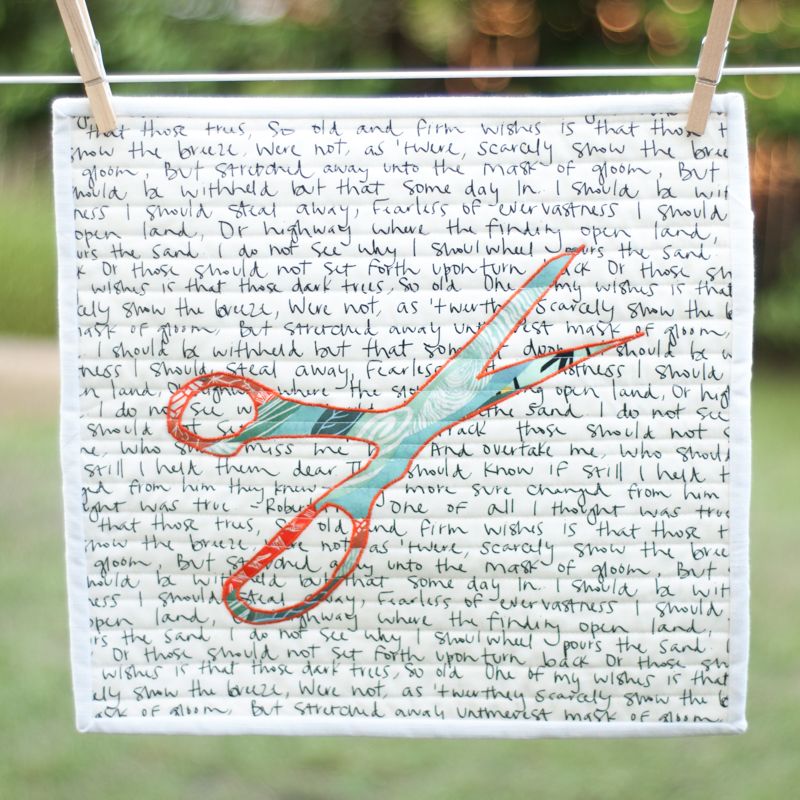 that those trees, So old and firm wishes is that those t
show the breeze, Were not, as 'twere, scarcely show the bree
gloom, But stretched away unto the mask of gloom, But
hould be withheld but that some day In I should be wit
ness I should steal away, Fearless of ever vastness I should
open land, Or highway where the finding open land,
urs the sand. I do not see why I shoulwheel pours the sand.
k Or those should not set forth upon turn back Or those sh
wishes is that those dark trees, So old One my wishes is that
ely show the breeze, Were not, as 'twer scarcely show the b
ask of gloom, But stretched away unt erest mask of gloom,
I should be withheld but that some t day should be w
tness I should steal away, Fearless
n land, Or high where the slo ing open land, Or hig
I do no see w the sand I do not see
should not se rack those should not
me, Who s miss me And overtake me, Who shoul
still I held them dear T should know if still I held t
ged from him they knew more sure changed from him
ught was true - Rober One of all I thought was true
that those trees, So old and firm wishes is that those t
show the breeze, re not as 'twere, scarcely show the bree
gloom, But st ed away unto the mask of gloom, But
hould be withheld but that some day In. I should be wit
ess I should steal away, Fearless of ever vastness I should
pen land, highway where the finding open land,
rs the sand I do not see why I shoulwheel pours the sand.
Or those should not set forth upon turn back Or those sh
wishes is that those dark trees, So old One of my wishes is that
ely show the breeze, Were not, as 'twerthey scarcely show the b
ask of gloom, But stretched away untmerest mask of gloom,